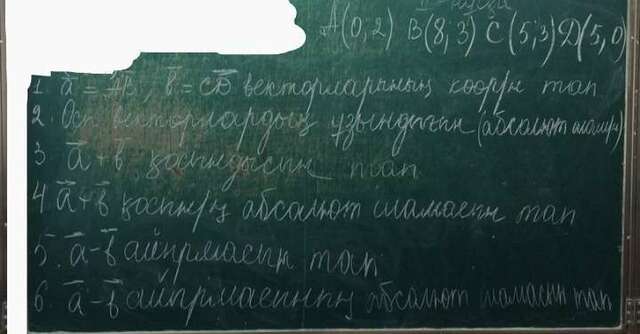 A(0,2) B(8,3) C(5,3) D(5,0)
1. a = AB, b = CD векторларының коорд тап
2. Осы векторлардың ұзындығын (абсалют шамасын)
3 a + b қосындысын тап
4 a + b қоспның абсалют шамасын тап
5. a - b айырмасын тап
6. a - b айырмасының абсалют шамасын тап